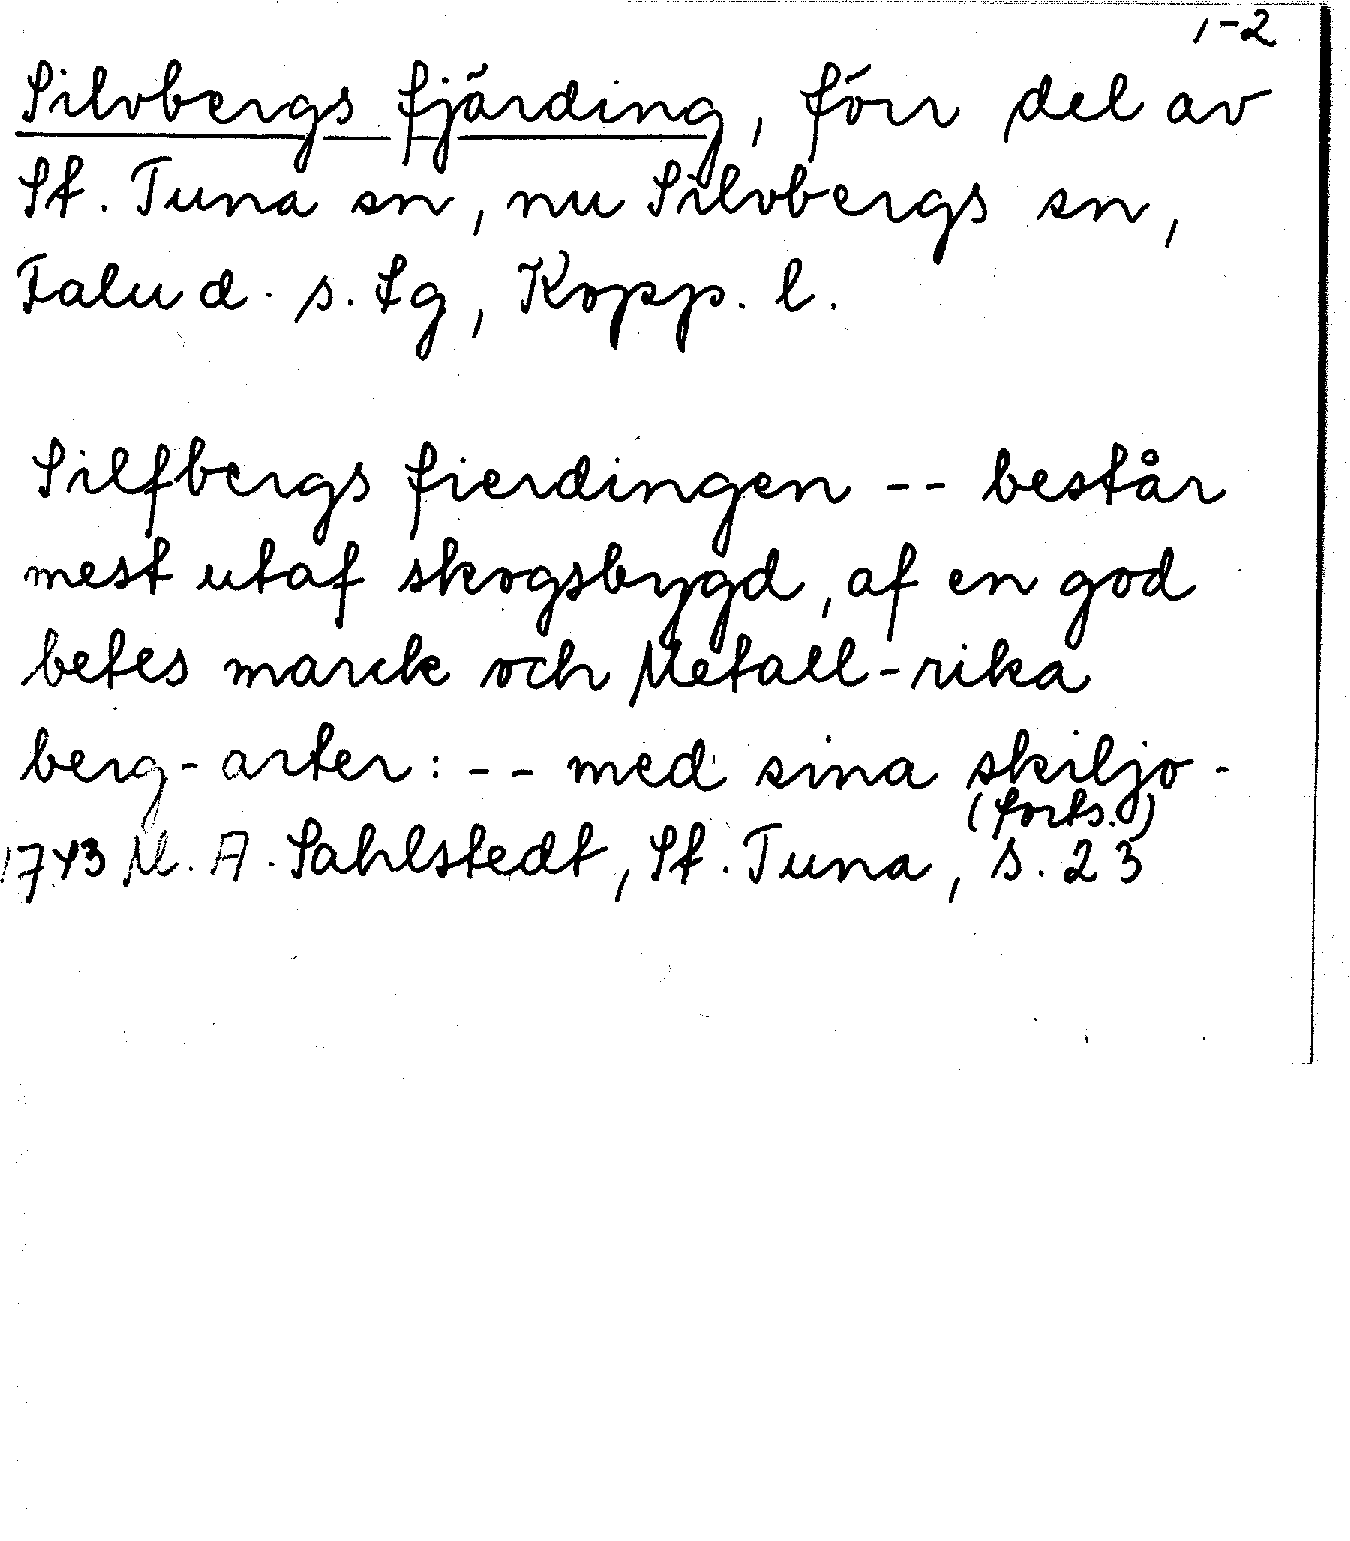 1-2
Silvbergs fjärding, förr del av
St. Tuna sn, nu Silvbergs sn,
Falu d. s. tg, Kopp. l.
Silfbergs fierdingen -- består
mest utaf skogsbygd, af en god
betes marck och Metall-rika
berg-arter: -- med sina skiljo-
(forts.)
1743 M. A. Sahlstedt, St. Tuna, s. 23